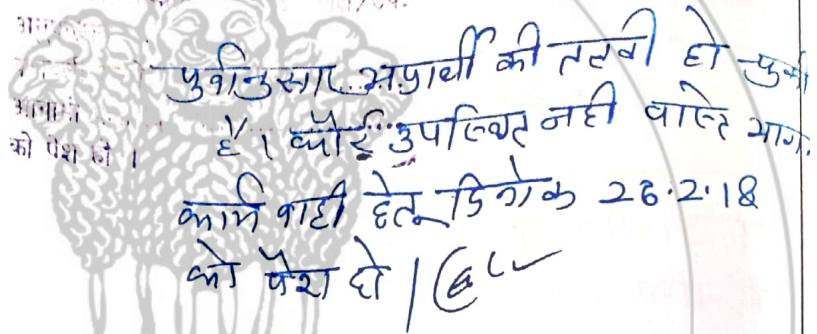 पुर्वानुसार अप्रार्थी की तलवी हो चुकी
है। कोई उपस्थित नही वास्ते आग.
को पेश हो।
कार्यवाही हेतू दिनांक 26.2.18
को पेश हो।